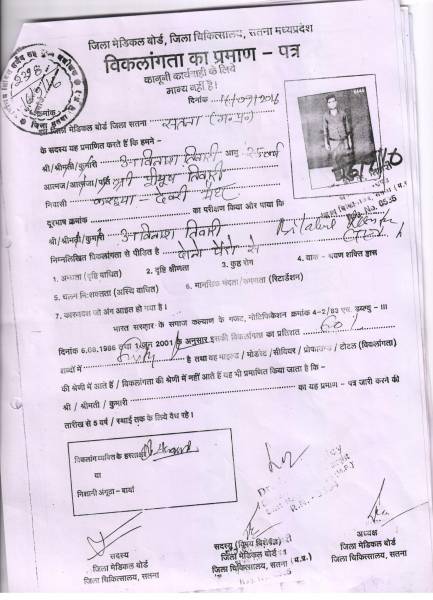 जिला मेडिकल बोर्ड, जिला चिकित्सालय, सतना मध्यप्रदेश
विकलांगता का प्रमाण – पत्र
कानूनी कार्यवाही के लिये
मान्य नहीं है।
दिनांक 16/09/2016
जिला मेडिकल बोर्ड जिला सतना सतना (म.प्र.)
के सदस्य यह प्रमाणित करते हैं कि हमने –
श्री/श्रीमती/कुमारी अविनाश तिवारी आयु 25 वर्ष
आत्मज/आत्मजा/पति श्री तिवारी
निवासी
दूरभाष क्रमांक का परीक्षण किया और पाया कि
श्री/श्रीमती/कुमारी अविनाश तिवारी Bilateral
निम्नलिखित विकलांगता से पीड़ित है दोनों पैरों से
1. अन्धता (दृष्टि बाधित) 2. दृष्टि क्षीणता 3. कुष्ठ रोग 4. वाक – श्रवण शक्ति ह्रास
5. चलन निःशक्तता (अस्थि बाधित) 6. मानसिक मंदता/रूग्णता (रिटार्डेशन)
7. कारणवश जो अंग आहत हो गया है।
भारत सरकार के समाज कल्याण के गजट, नोटिफिकेशन क्रमांक 4-2/83 एच. डब्ल्यू - III
दिनांक 6.08.1986 तथा 1 जून 2001 के अनुसार इसकी विकलांगता का प्रतिशत 60%
शब्दों में है तथा वह माइल्ड / मोडरेट / सीवियर / प्रोफाउन्ड / टोटल (विकलांगता)
की श्रेणी में आते हैं / विकलांगता की श्रेणी में नहीं आते हैं यह भी प्रमाणित किया जाता है कि –
श्री / श्रीमती / कुमारी का यह प्रमाण – पत्र जारी करने की
तारीख से 5 वर्ष / स्थाई तक के लिये वैध रहे।
विकलांग व्यक्ति के हस्ताक्षर
या
निशानी अंगूठा - बायां
सदस्य
जिला मेडिकल बोर्ड
जिला चिकित्सालय, सतना
सदस्य (विषय विशेषज्ञ)
जिला मेडिकल बोर्ड
जिला चिकित्सालय, सतना (म.प्र.)
अध्यक्ष
जिला मेडिकल बोर्ड
जिला चिकित्सालय, सतना